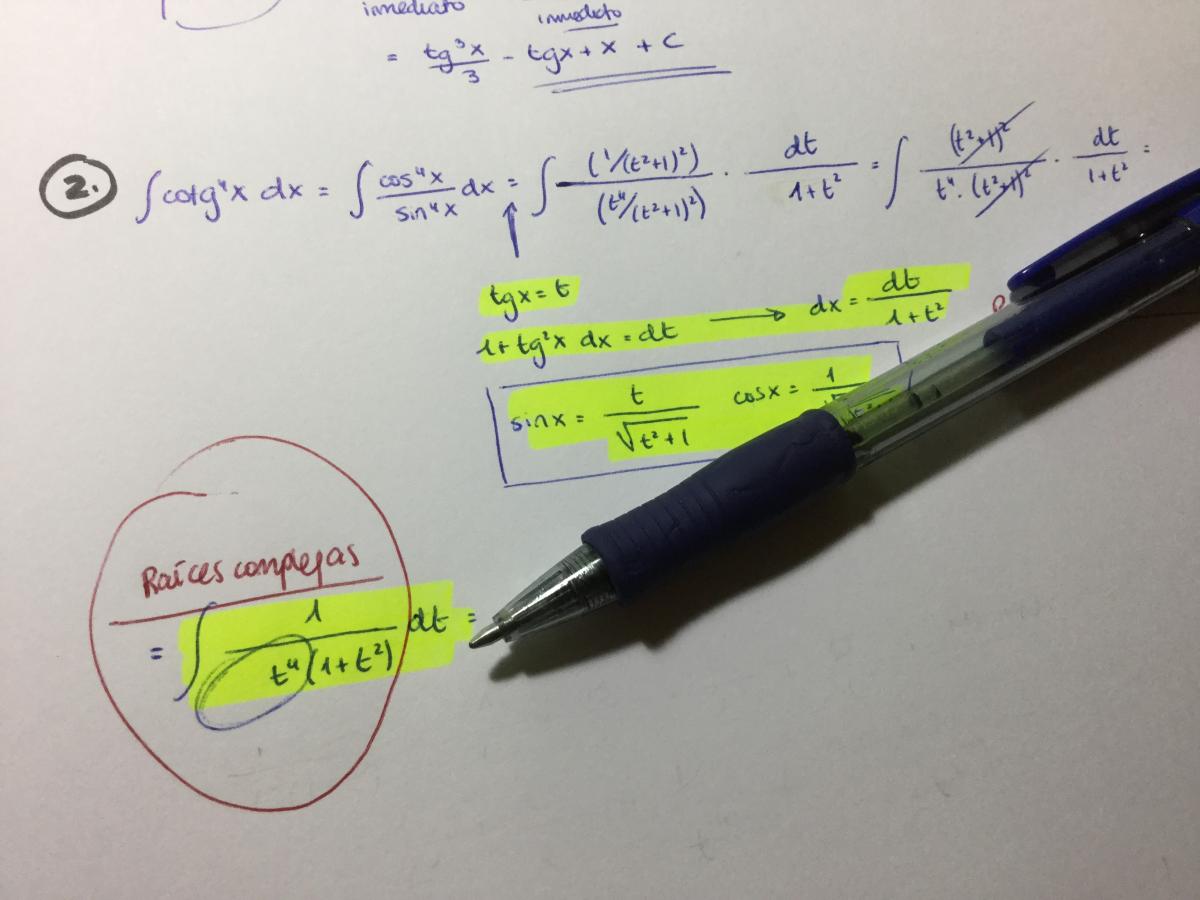 inmediato inmediato
= tg³x/3 - tgx + x + C
2. ∫cotg⁴x dx = ∫ cos⁴x/sin⁴x dx = ∫ (1/(t²+1)²)/(t⁴/(t²+1)²) · dt/1+t² = ∫ (t²+1)²/t⁴·(t²+1)² · dt/1+t² =
tgx = t
1+tg²x dx = dt → dx = dt/1+t²
sinx = t/√t²+1 cosx = 1/
Raíces complejas
= ∫ 1/t⁴(1+t²) dt =